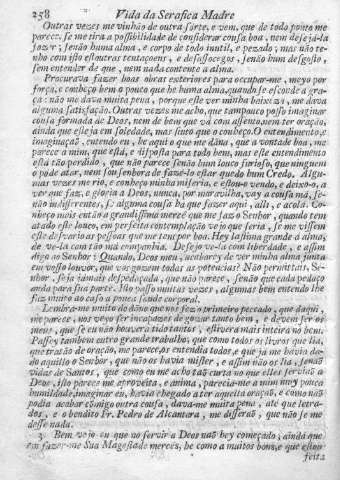 258 Vida da Serafica Madre
Outras vezes me vinhaõ de outra sorte, e vem, que de todo ponto me
parece, se me tira a possibilidade de considerar cousa boa, nem desejá-la
fazer; senaõ huma alma, e corpo de todo inutil, e pezado; mas naõ te-
nho com isto estoutras tentaçoens, e desassocegos, senaõ hum desgosto,
sem entender de que, nem nada contente a alma.
Procurava fazer boas obras exteriores para occupar-me, meyo por
força, e conheço bem o pouco que he huma alma, quando se esconde a gra-
ça: naõ me dava muita pena, porque este ver minha baixeza, me dava
alguma satisfaçaõ. Outras vezes me acho, que tampouco posso imaginar
cousa formada de Deos, nem de bem que vá com assento, nem ter oraçaõ,
ainda que esteja em soledade, mas sinto que o conheço. O entendimento, e
imaginaçaõ, entendo eu, he aqui o que me dána, que a vontade boa, me
parece a mim, que está, e disposta para todo bem, mas este entendimento
está taõ perdido, que naõ parece senaõ hum louco furioso, que ninguem
o póde atar, nem sou senhora de fazê-lo estar quedo hum Credo. Algu-
mas vezes me rio, e conheço minha miseria, e estou-o vendo, e deixo-o, a
ver que faz, e gloria a Deos, nunca, por maravilha, vay a cousa má, se-
naõ indifferentes, se alguma cousa ha que fazer aqui, alli, e acolá. Co-
nheço mais entaõ a grandissima mercê que me faz o Senhor, quando tem
atado este louco, em perfeita contemplaçaõ vejo que seria, se me vissem
este desvario as pessoas que me tem por boa. Hey lastima grande á alma,
de ve-la com taõ má companhia. Desejo ve-la com liberdade, e assim
digo ao Senhor: Quando, Deos meu, acabarey de ver minha alma junta
em vosso louvor, que vos gozem todas as potencias? Naõ permittais, Se-
nhor, seja jámais despedaçada, que naõ parece, senaõ que cada pedaço
anda para sua parte. Isto passo muitas vezes, algumas bem entendo lhe
faz muito ao caso a pouca saude corporal.
Lembra-me muito do dano que nos fez o primeiro peccado, que daqui,
me parece, nos veyo ser incapazes de gozar tanto bem, e devem ser os
meus, que se eu naõ houvera tido tantos, estivera mais inteira no bem.
Passey tambem outro grande trabalho, que como todos os livros que lia,
que trataõ de oraçaõ, me parecia, os entendia todos, e que já me havia da-
do aquillo o Senhor, que naõ os havia mister, e assim naõ os lia, senaõ
vidas de Santos, que como eu me acho taõ curta no que elles serviaõ a
Deos, isto parece me aproveita, e anima, parecia-me a mim muy pouca
humildade, imaginar eu, havia chegado a ter aquella oraçaõ, e como naõ
podia acabar comigo outra cousa, dava-me muita pena, até que letra-
dos, e o bendito Fr. Pedro de Alcantara, me disseraõ, que naõ se me
désse nada.
3 Bem vejo eu que no servir a Deos naõ hey começado; ainda que
em fazer-me Sua Magestade mercês, he como a muitos bons, e que estou
feita